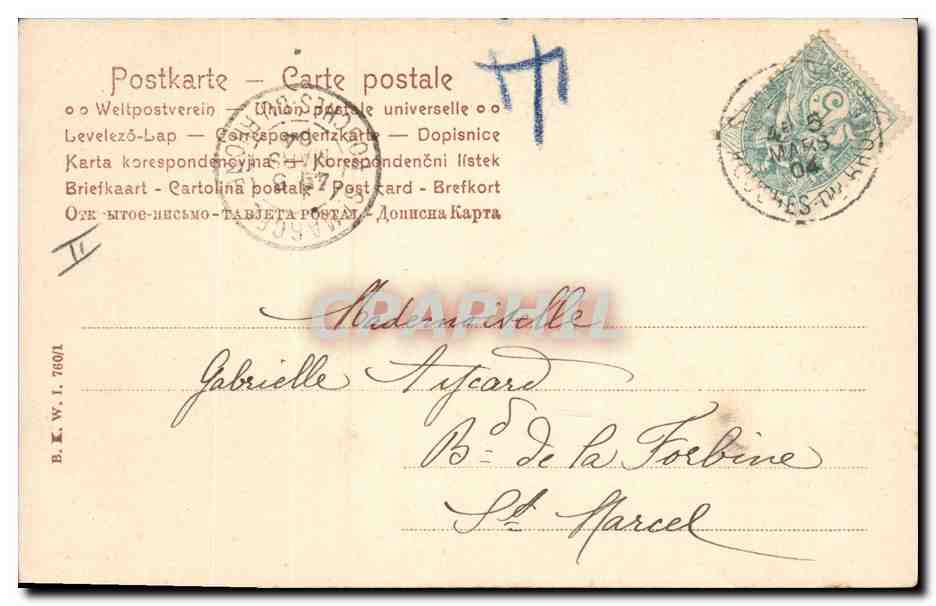 Postkarte — Carte postale
Weltpostverein — Union postale universelle
Levelező-Lap — Correspondenzkarte — Dopisnice
Karta korespondencyjna — Korespondenční lístek
Briefkaart - Cartolina postale - Post card - Brefkort
Отк ытое-письмо-TABJETA POSTAL - Дописна Карта
MARS
04
BOUCHES-DU-RHÔ
II
CPARHII
Mademoiselle
Gabrielle Aycard
Bd de la Forbine
St Marcel
B. K. W. I. 760/1